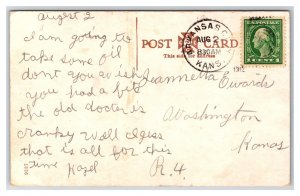 august 2
I am going to
take some oil
dont you wish
you had a bit
the old doctor is
cranky well guess
that is all for this
time Hazel
POST CARD
KANSAS CITY
AUG 2
830AM
KANS.
Jeannetta Edwards
Washington
Kansas
R. 4.